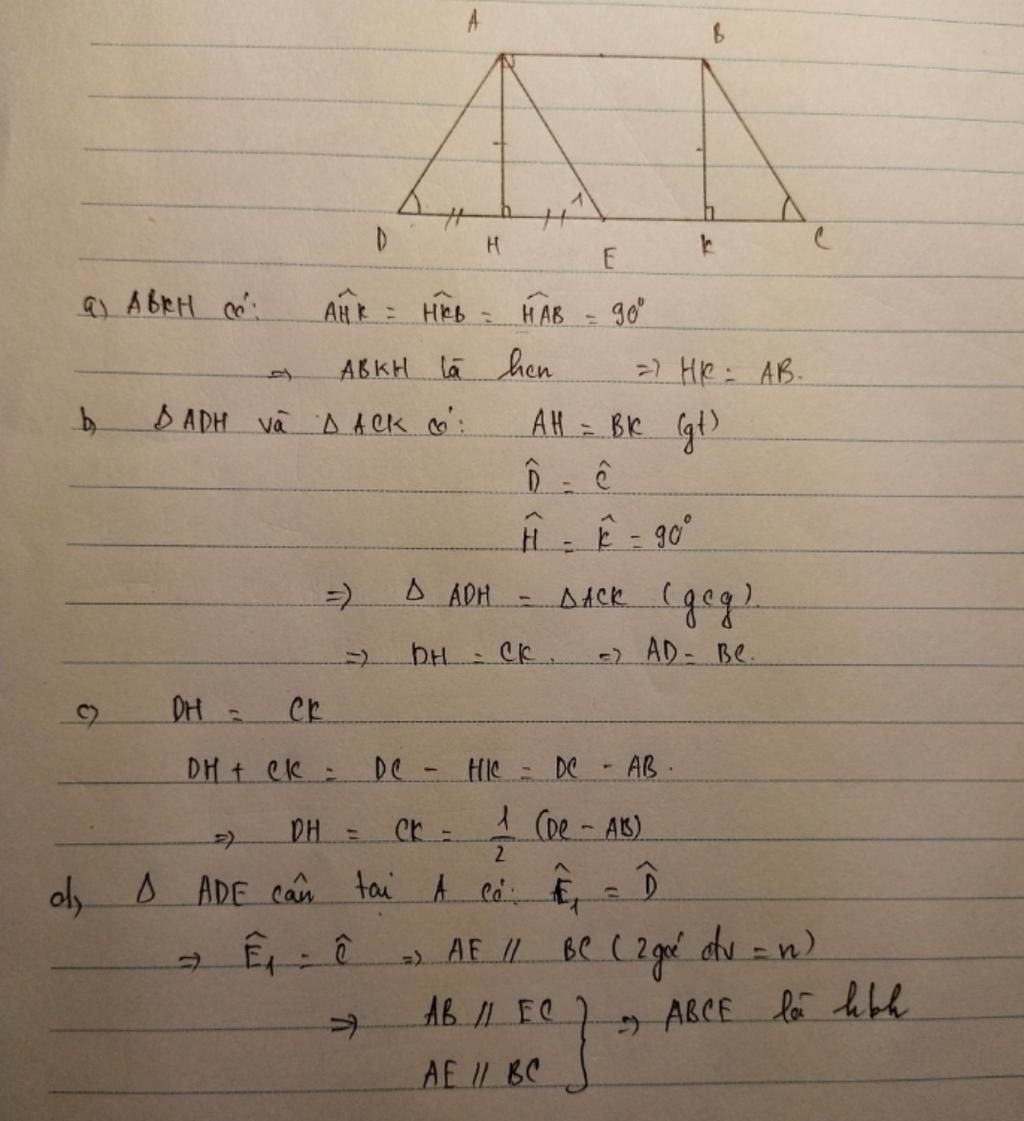 A B
D H E K C
1
a) ABKH có: AĤK = HK̂B = HÂB = 90°
=> ABKH là hcn => HK = AB.
b, Δ ADH và Δ ACK có: AH = BK (gt)
D̂ = Ĉ
Ĥ = K̂ = 90°
=> Δ ADH = Δ ACK (gcg).
=> DH = CK. => AD = BC.
c) DH = CK
DH + CK = DC - HK = DC - AB.
=> DH = CK = 1/2 (DC - AB)
d, Δ ADE cân tại A có: Ê₁ = D̂
=> Ê₁ = Ĉ => AE // BC (2 góc đv = n)
=> AB // EC } => ABCE là hbh
AE // BC